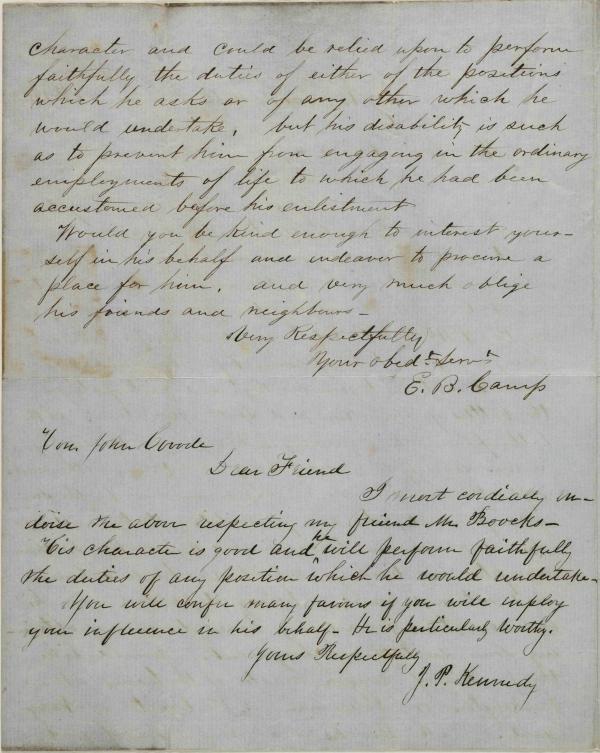 character and could be relied upon to perform
faithfully the duties of either of the positions
which he asks or of any other which he
would undertake, but his disability is such
as to prevent him from engaging in the ordinary
employments of life to which he had been
accustomed before his enlistment
Would you be kind enough to interest your-
self in his behalf and indeavor to procure a
place for him, and very much oblige
his friends and neighbours-
Very Respectfully
Your obedt Servt
E. B. Camp
Hon John Covode
Dear Friend
I most cordially in-
dorse the above respecting my friend Mr Boocks-
His character is good and he will perform faithfully
the duties of any position which he would undertake-
You will confer many favours if you will imploy
your influence in his behalf- He is particularly worthy.
Yours Respectfully
J. P. Kennedy